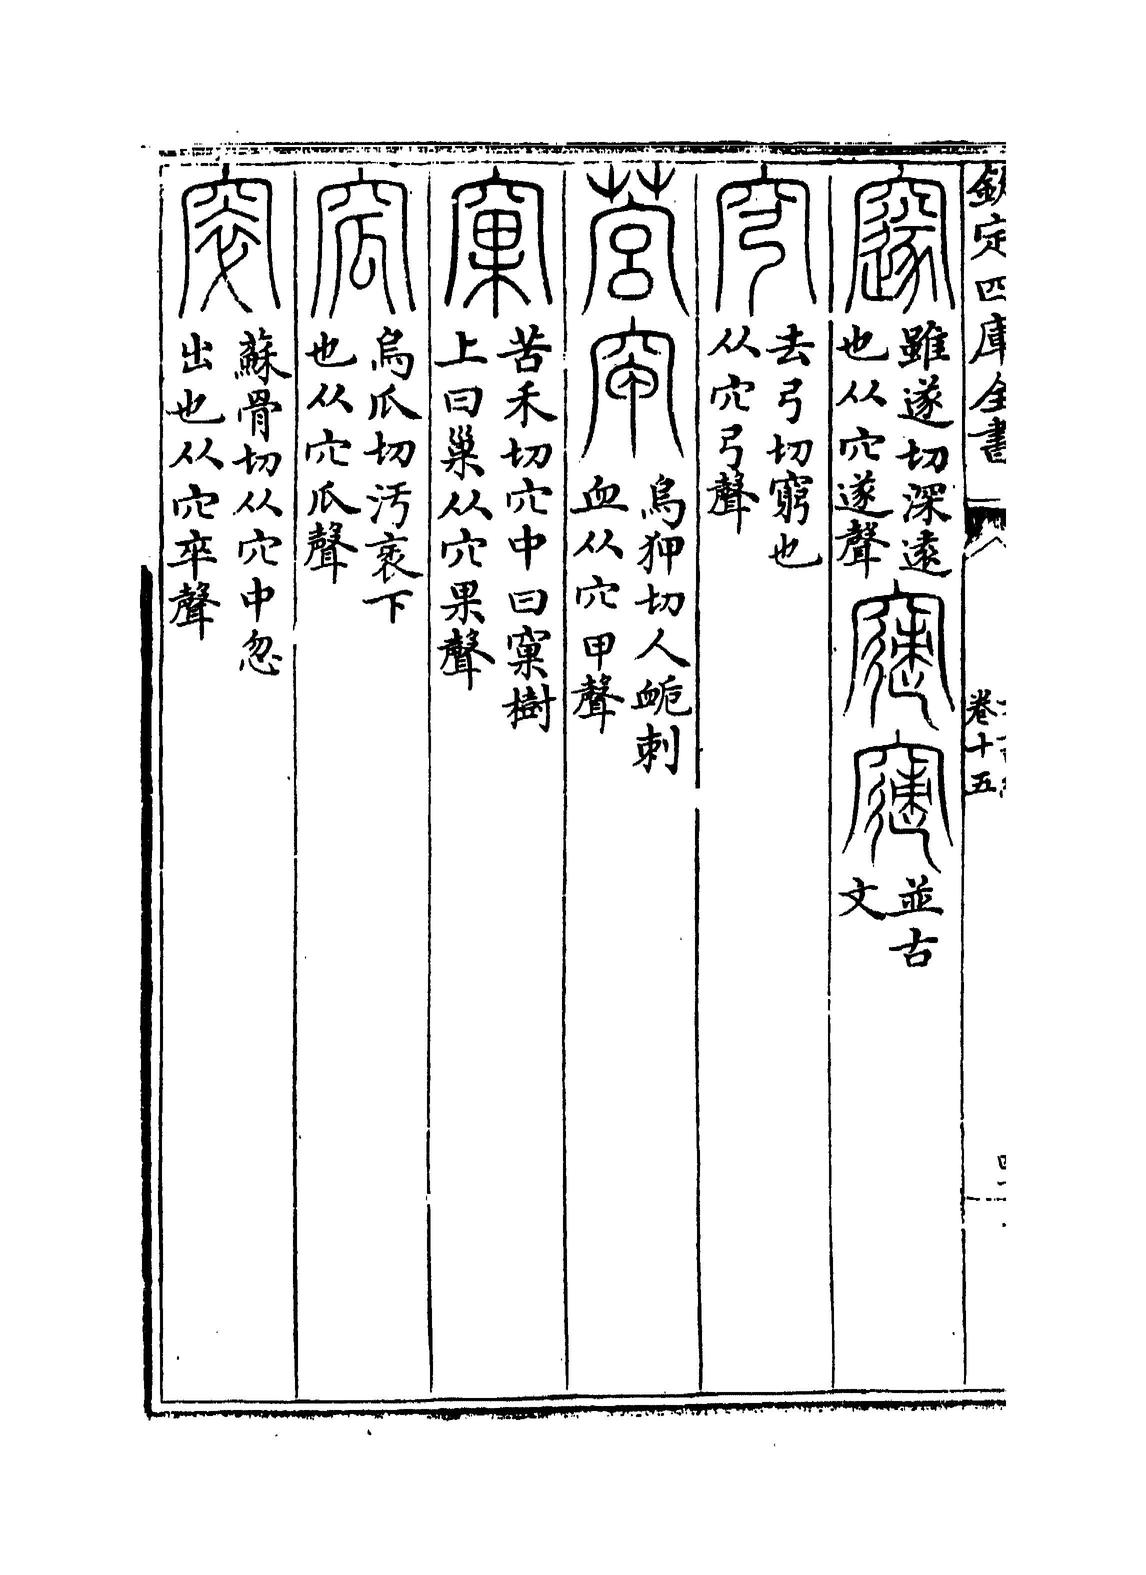 欽定四庫全書
卷十五
邃
雖遂切深遠
也从穴遂聲
並古
文
穹
去弓切窮也
从穴弓聲
烏狎切人衇刺
血从穴甲聲
窠
苦禾切穴中曰窠樹
上曰巢从穴果聲
窊
烏瓜切汚衺下
也从穴瓜聲
窣
蘇骨切从穴中忽
出也从穴卒聲